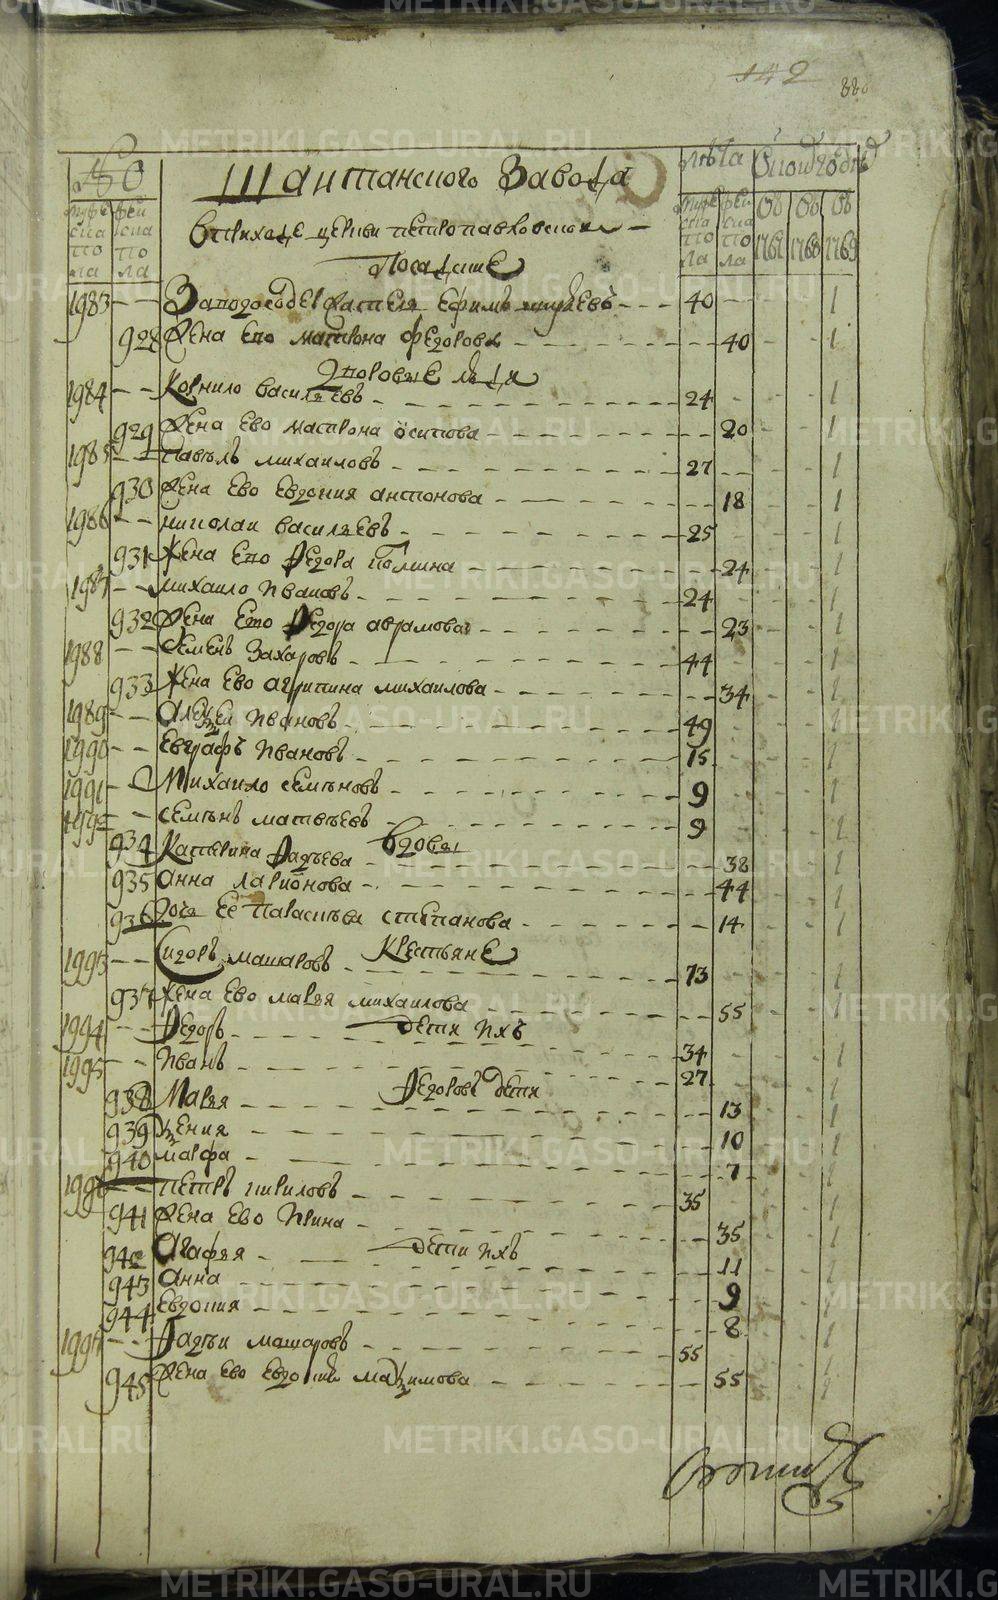 142
Шаитанского Завода
В приходе церкви петропавловской
Посацкие
лѣта
муже ска по ла
жен ска по ла
муже ска по ла
жен ска по ла
1761 1768 1769
1983 Ефимъ 40 1
928 Жена Ево матрона Федорова 40 1
Здоровые люди
1984 Корнило василиевъ 24 1
929 Жена Ево матрона осипова 20 1
1985 Павелъ михаиловъ 27 1
930 Жена Ево Евдокия антонова 18 1
1986 николаи василиевъ 25 1
931 Жена Ево Федора 24 1
1987 михаило Ивановъ 24 1
932 Жена Ево Федора аврамова 23 1
1988 Семенъ Захаровъ 44 1
933 Жена Ево агрипина михаилова 34 1
1989 Алеѯеи Ивановъ 49 1
1990 Евграфъ Ивановъ 15 1
1991 Михаило семеновъ 9 1
1992 семенъ матвеевъ 9 1
Вдовы
934 Катерина Фадеева 38 1
935 Анна лариѡнова 44 1
936 Дочь Ее Параскева степанова 14 1
Крестьяне
1993 Сидоръ машаровъ 73 1
937 Жена Ево марья михаилова 55 1
дети ихъ
1994 Федоръ 34 1
1995 Иванъ 27 1
Федоровы дети
938 Марья 13 1
939 Ѯения 10 1
940 марфа 7 1
1996 петръ кириловъ 35 1
941 Жена Ево Ирина 35 1
дети ихъ
942 Агафья 11 1
943 Анна 9 1
944 Евдокия 8 1
1997 Фадеи машаровъ 55 1
945 Жена Ево Евдокия маѯимова 55 1
METRIKI.GASO-URAL.RU